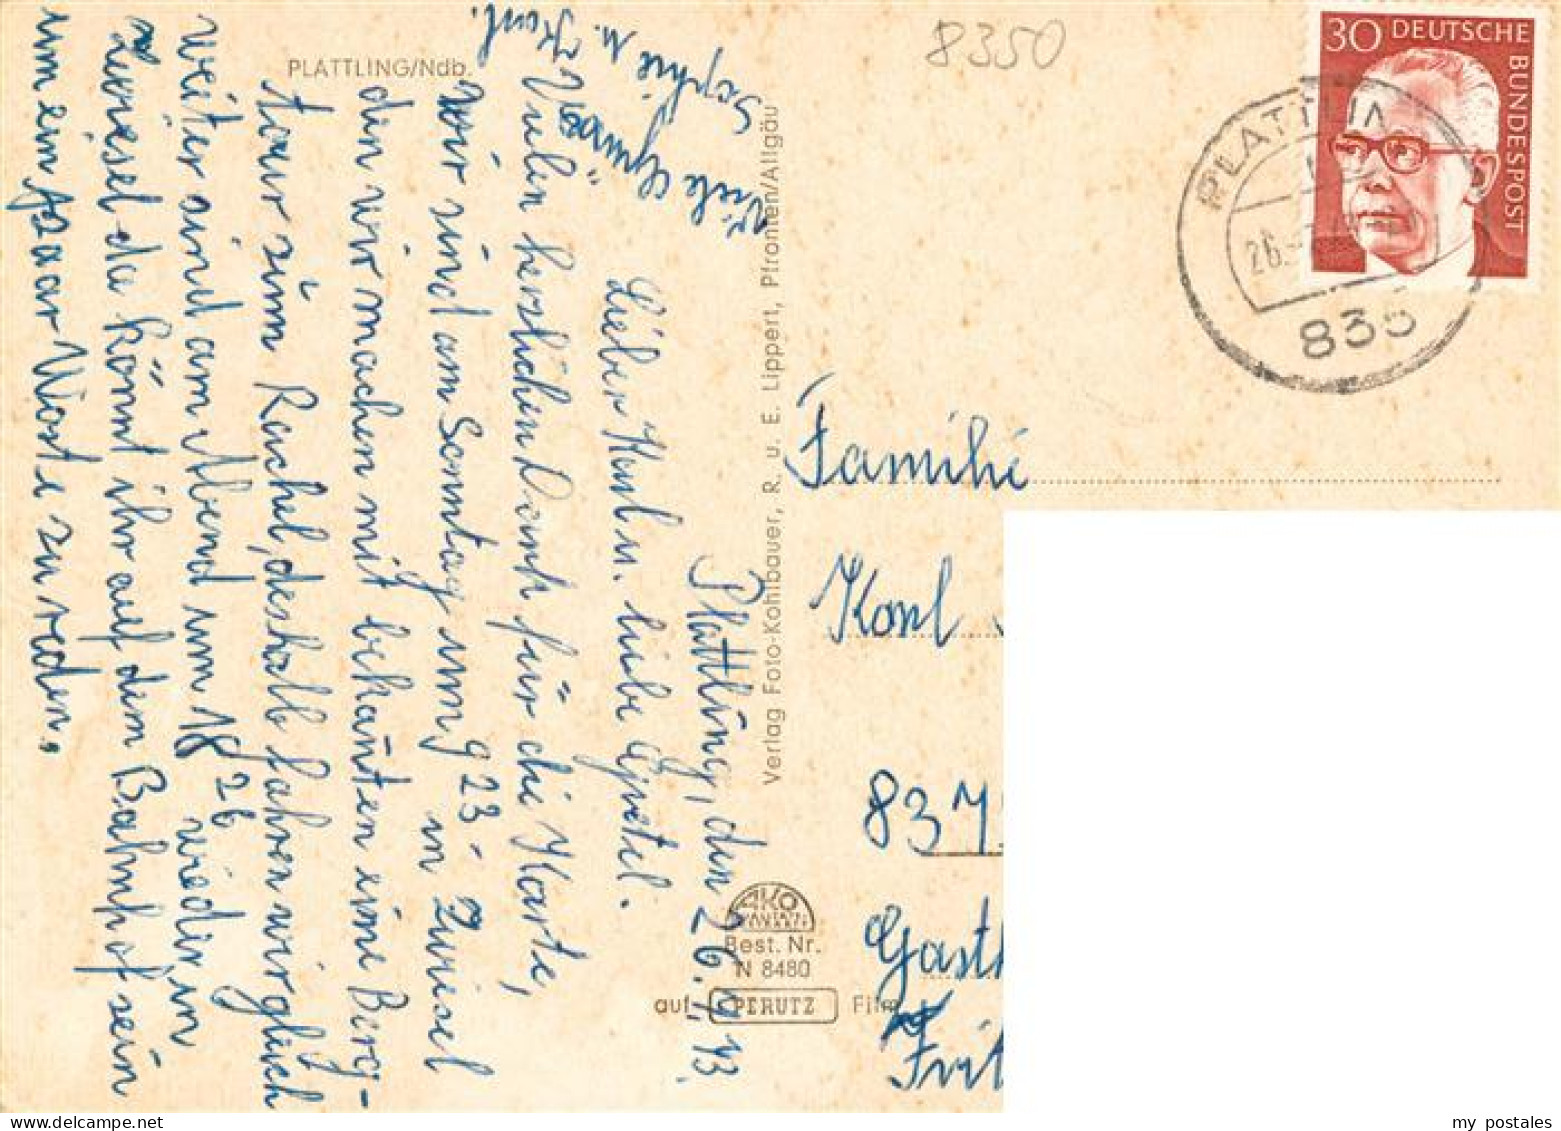 PLATTLING/Ndb.
Plattling, den 26.
Lieber Karl u. liebe Gretel.
Vielen herzlichen Dank für die Karte,
wir sind am Sonntag um 9 23 - in Zwiesel
den wir machen mit bekannten eine Berg-
tour zum Rachel, deshalb fahren wir gleich
weiter sind am Abend um 18 26 wieder in
Zwiesel da könnt ihr auf dem Bahnhof sein
um ein paar Worte zu reden.
Viele Grüsse
Sophie u. Karl.
Verlag Foto-Kohlbauer, R. u. E. Lippert, Pfronten/Allgäu
AKO
Best. Nr.
N 8480
auf PERUTZ Film
8350
30 DEUTSCHE
BUNDESPOST
PLATTLIN
26.
835
Familie
Karl
837
Gasth
Frit
my postales